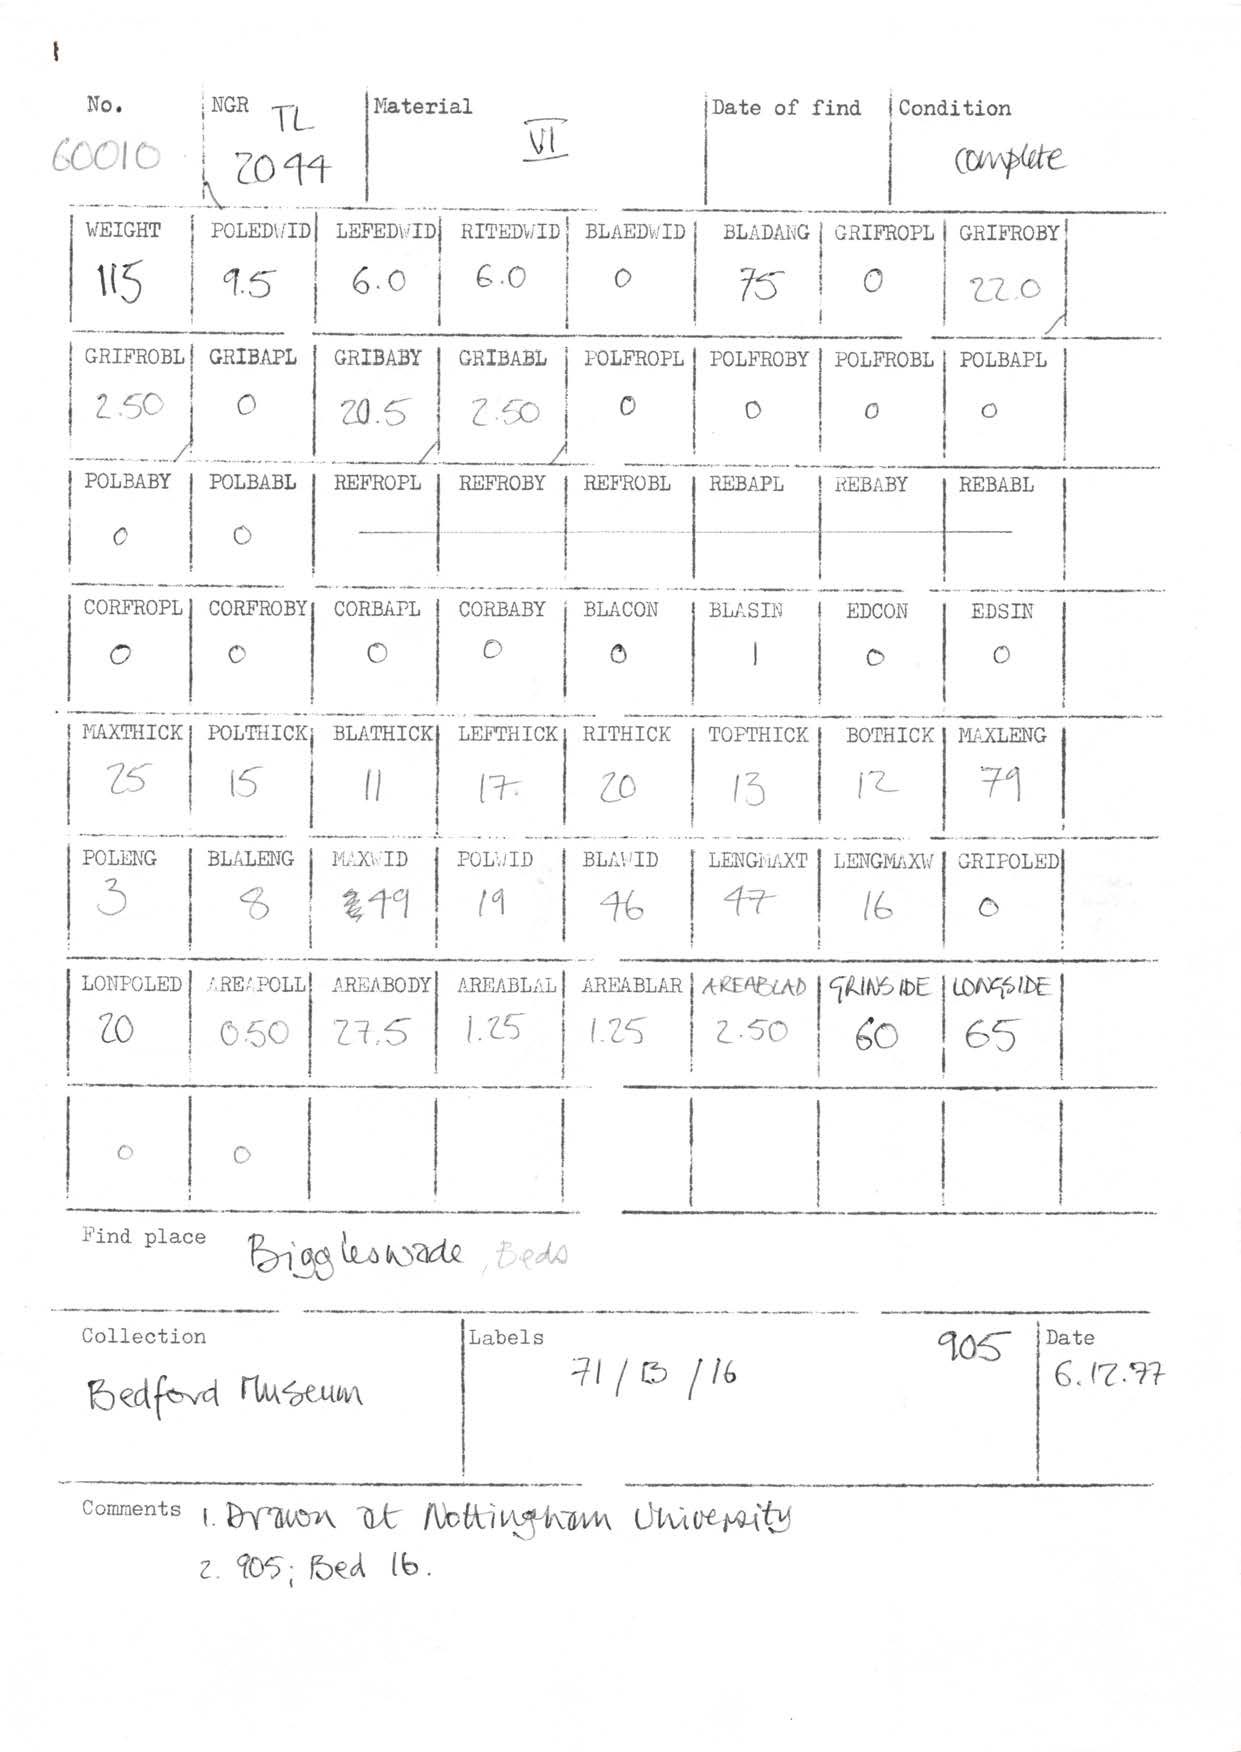 No. NGR Material Date of find Condition
60010 TL 2044 VI complete
WEIGHT POLEDWID LEFEDWID RITEDWID BLAEDWID BLADANG GRIFROPL GRIFROBY
115 9.5 6.0 6.0 0 75 0 22.0
GRIFROBL GRIBAPL GRIBABY GRIBABL POLFROPL POLFROBY POLFROBL POLBAPL
2.50 0 20.5 2.50 0 0 0 0
POLBABY POLBABL REFROPL REFROBY REFROBL REBAPL REBABY REBABL
0 0
CORFROPL CORFROBY CORBAPL CORBABY BLACON BLASIN EDCON EDSIN
0 0 0 0 0 1 0 0
MAXTHICK POLTHICK BLATHICK LEFTHICK RITHICK TOPTHICK BOTHICK MAXLENG
25 15 11 17. 20 13 12 79
POLENG BLALENG MAXWID POLWID BLAWID LENGMAXT LENGMAXW GRIPOLED
3 8 49 19 46 47 16 0
LONPOLED AREAPOLL AREABODY AREABLAL AREABLAR AREABLAD GRINSIDE LONGSIDE
20 0.50 27.5 1.25 1.25 2.50 60 65
0 0
Find place Biggleswade, Beds
Collection Labels 905 Date
Bedford Museum 71/B/16 6.12.77
Comments 1. Drawn at Nottingham University
2. 905; Bed 16.